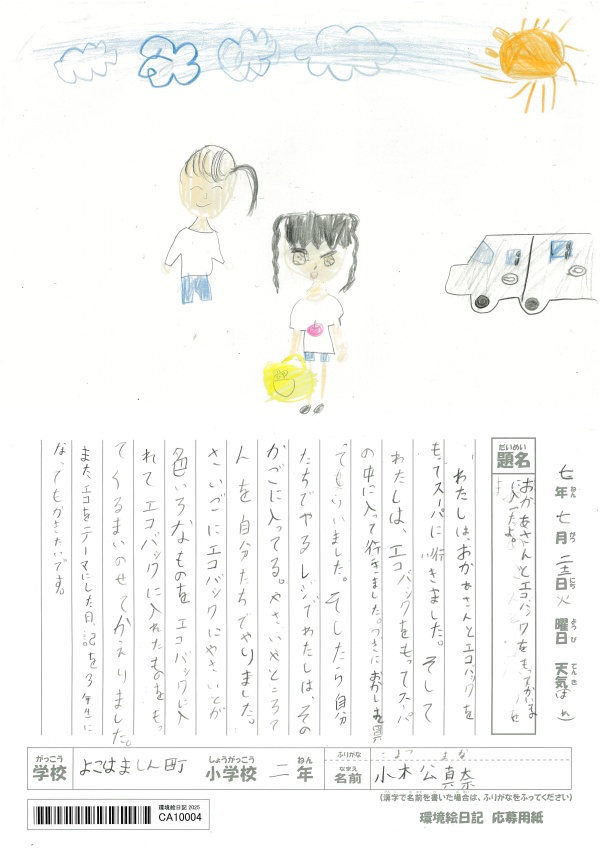 七年七月二十二日火曜日 天気(はれ)
ねん がつ にち ようび てんき
だいめい
題名
おかあさんとエコバックをもってかいものに入ったよ。
わたしは、おかあさんとエコバックを
もってスーパに行きました。そして
わたしは、エコバックをもってスーパ
の中に入って行きました。つぎにおかしも買
ってもらいました。そしたら自分
たちでやるレジでわたしは、その
かごに入ってる。やさいやところて
人を自分たちでやりました。
さいごにエコバックにやさいとか
色いろなものをエコバックに入
れてエコバックに入れたものをもっ
てくるまいのせてかえりました。
また、エコをテーマにした日記を3年生に
なってもかきたいです。
がっこう
学校
よこはましん町
しょうがっこう
小学校
二
ねん
年
ふりがな
なまえ
名前
まな
小木公真奈
(漢字で名前を書いた場合は、ふりがなをふってください)
環境絵日記 2025
CA10004
環境絵日記 応募用紙